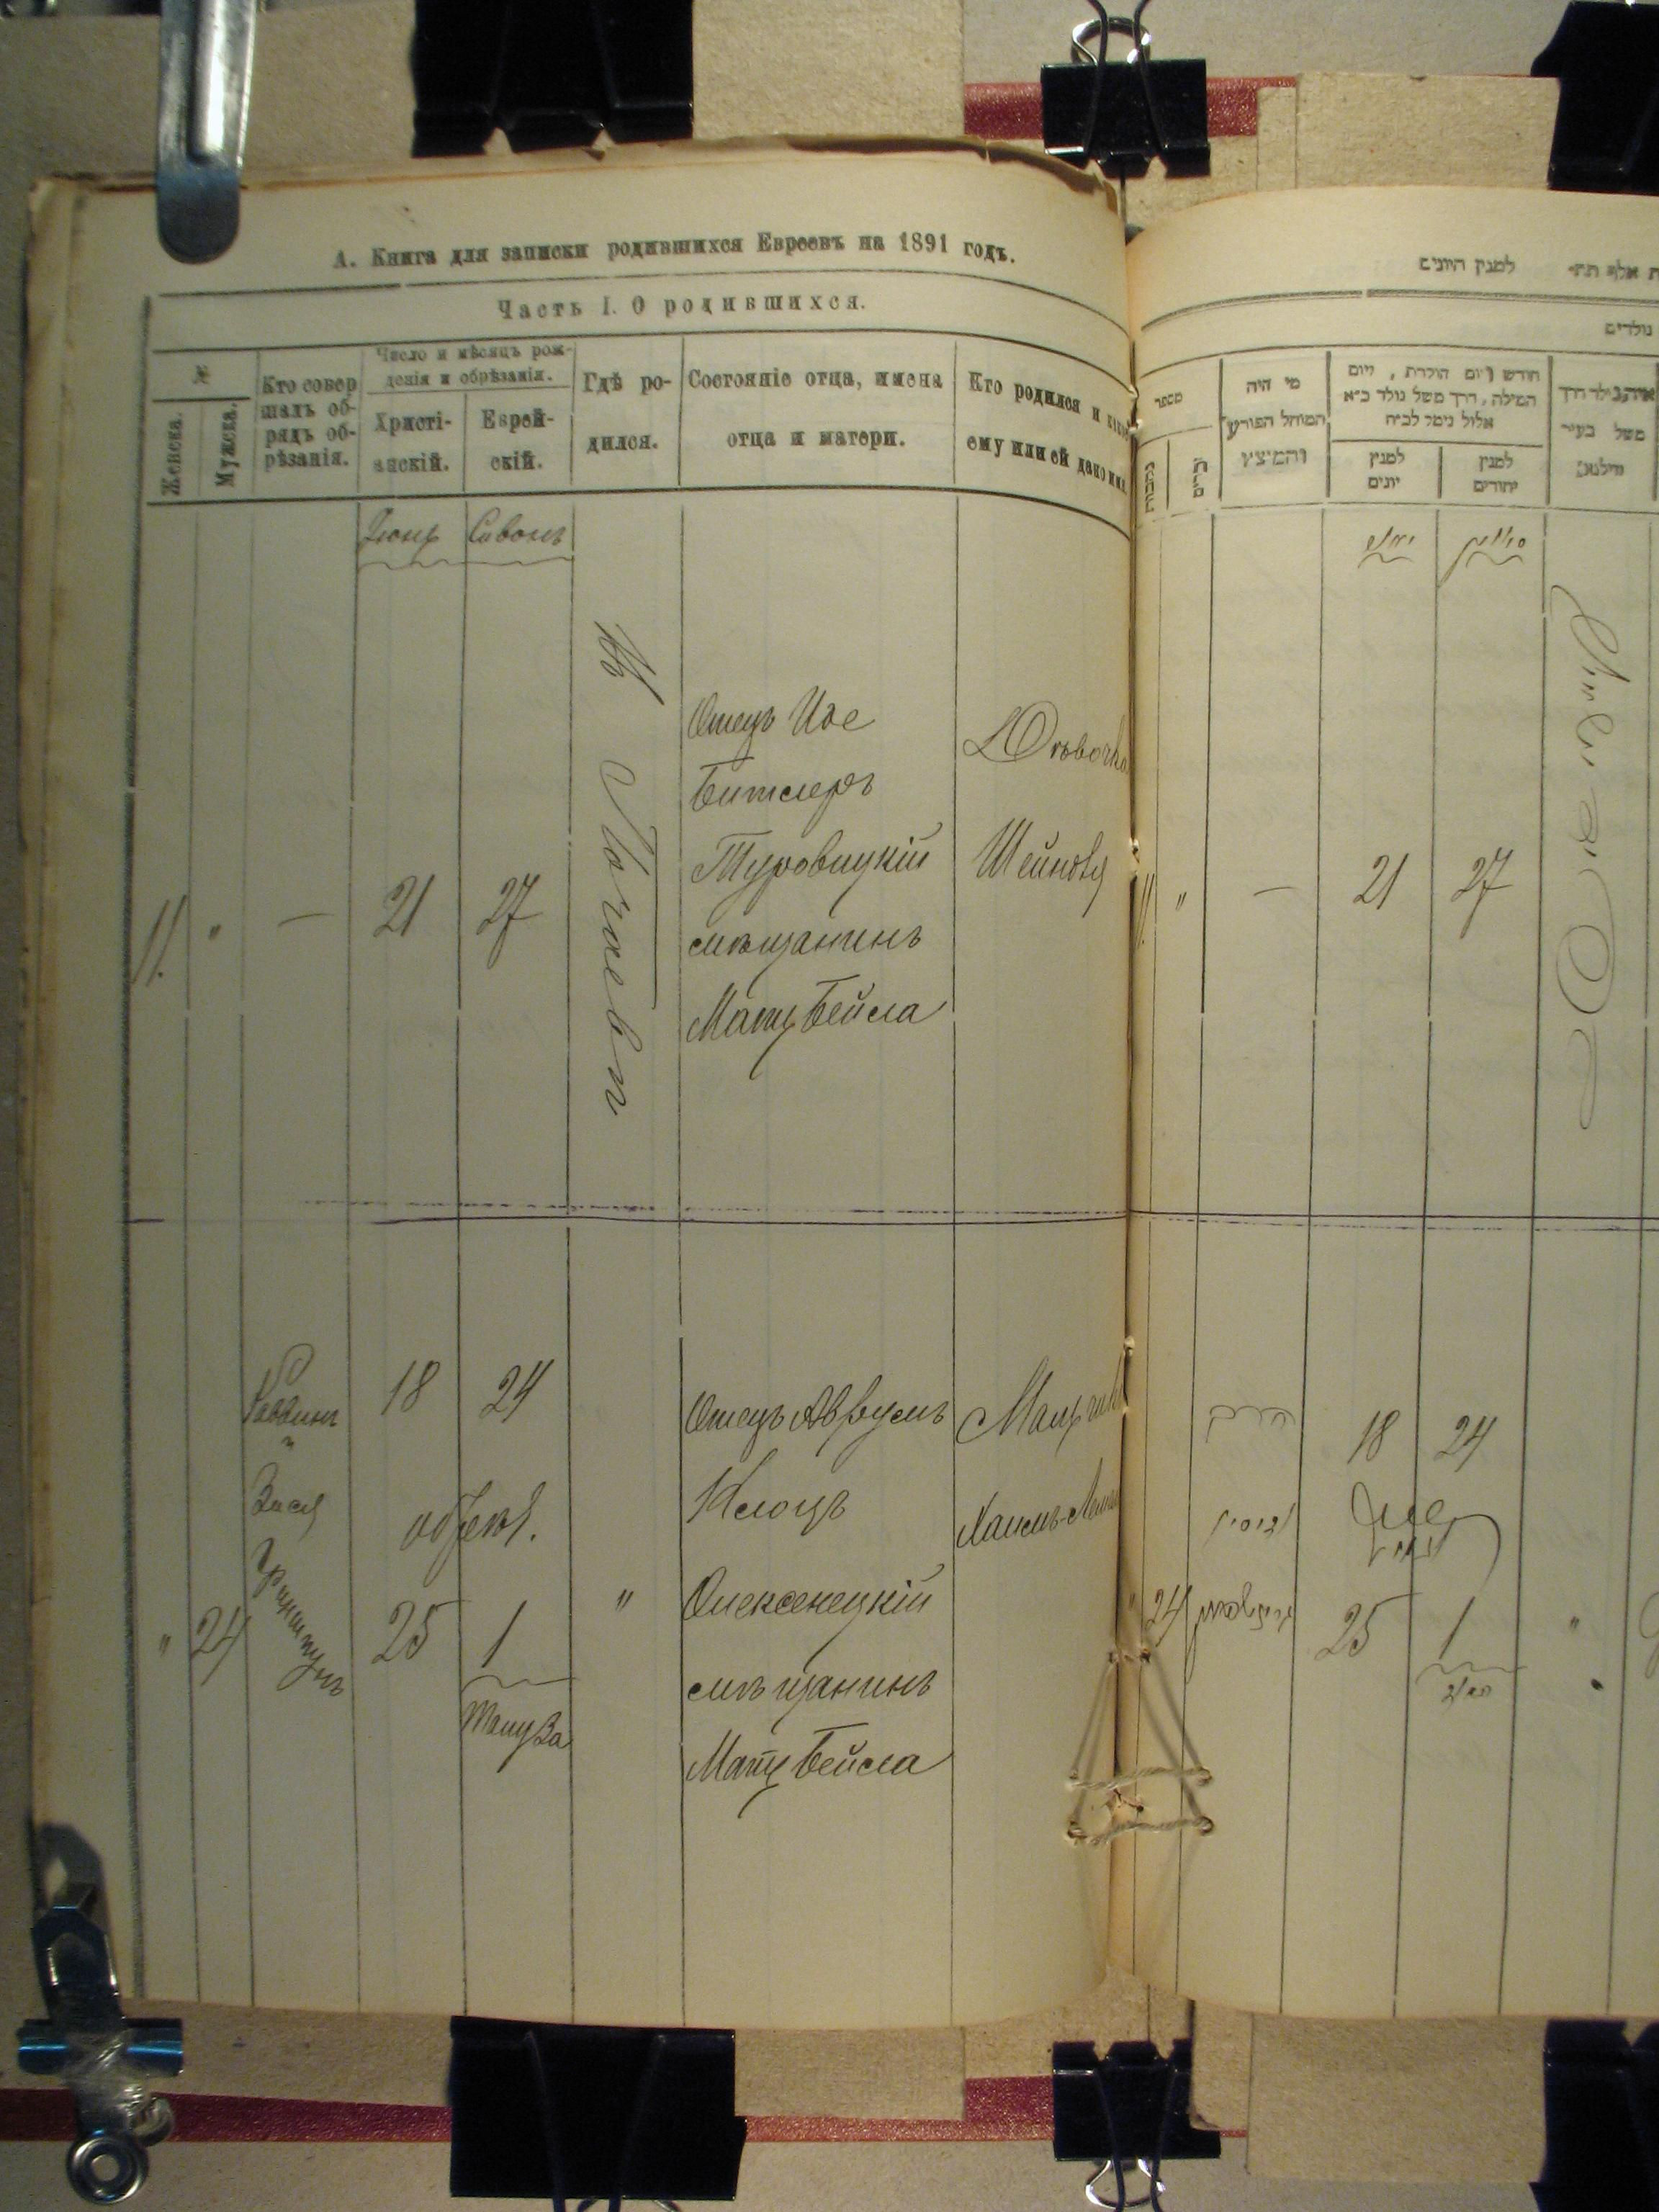 А. Книга для записки родившихся Евреевъ на 1891 годъ.
Часть I. О родившихся.
№
Женска.
Мужска.
Кто совер
шалъ об-
рядъ об-
рѣзанія.
Число и мѣсяцъ рож-
денія и обрѣзанія.
Христі-
анскій.
Еврей-
скій.
Гдѣ ро-
дился.
Состояніе отца, имена
отца и матери.
Кто родился и какое
ему или ей дано имя.
Іюнь
Сивонъ
11.
"
—
21
27
Въ Почаевѣ
Отецъ Иос
Битлеръ
Туровицкій
мѣщанинъ
Мать Бейла
Дѣвочка
Шейндя
"
24
Раввинъ
Зися
18
24
обрѣз.
25
1
Тамуза
"
Отецъ Аврумъ
Клоцъ
Олексенецкій
мѣщанинъ
Мать Бейла
Мальчикъ
למנין היונים
נולדים
מספר
נקבות
זכרים
מי היה
המוהל הפורע
והמיצץ
חודש ויום הולדת, ויום
המילה, דרך משל נולד כ״א
אלול נימל לכ״ח
למנין
יונים
למנין
יהודים
משל בעיר
11.
"
—
21
27
18
24
"
24
25
1
"